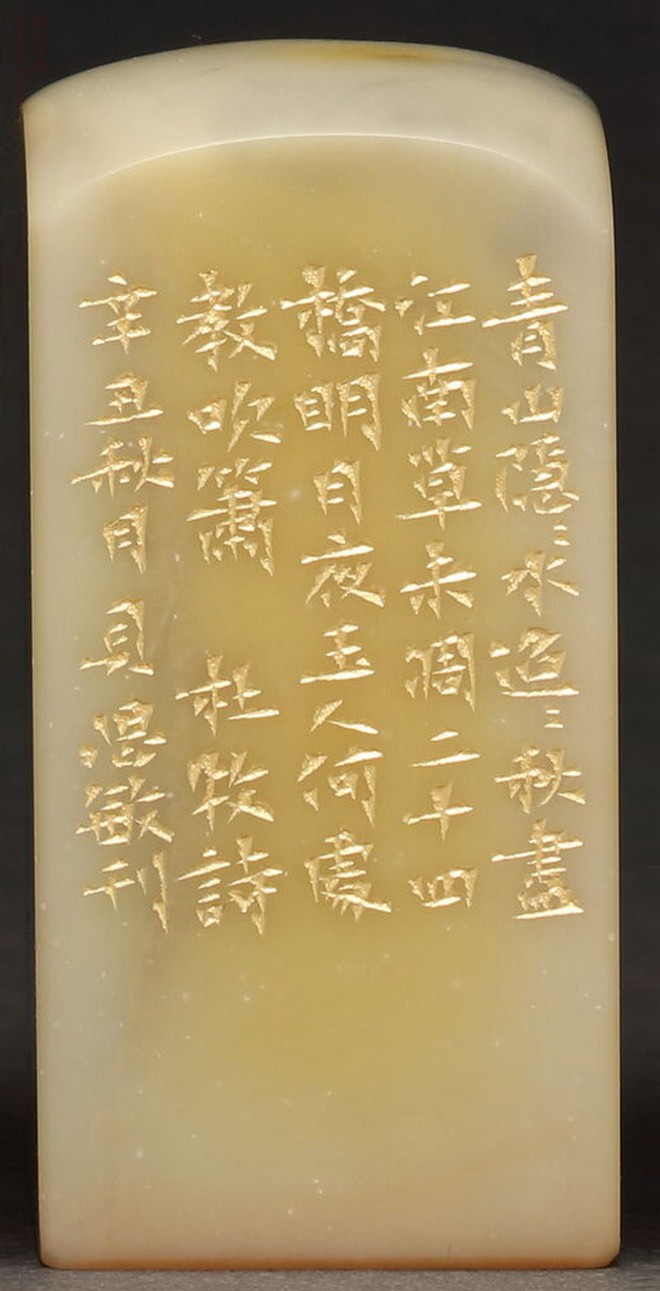 青山隱〻水迢〻秋盡
江南草未凋二十四
橋明月夜玉人何處
教吹簫 杜牧詩
辛丑秋月 貝思敏刊